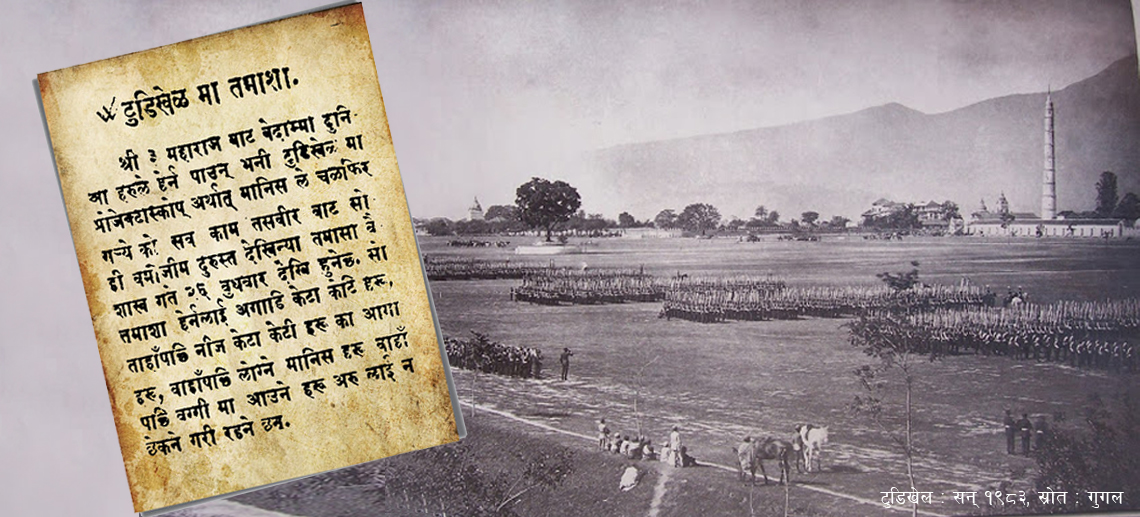 टुडिखेळ मा तमाशा.
श्री ३ महाराज बाट बेदाम्मा दुनि
आ हरुले हेर्न पाउन् भनी टुडिखेळ मा
प्रोजेक्टास्कोप् अर्थात् मानिस ले चलफिर
गर्‍ये को सव काम तसवीर बाट सो
ही वमोजीम दुरुस्त देखिन्या तमासा वै
शाख गते २६ वुधवार देखि हुनेछ. सो
तमाशा हेर्नलाई अगाडि केटा केटि हरू,
ताहाँपछि नीज केटा केटी हरू का आमा
हरू, वाहाँपछि लोग्ने मानिस हरू वाहाँ
पछि वग्गी मा आउने हरू अरु लाई न
छेकने गरी रहने छन.
टुडिखेल : सन् १९८३, स्रोत : गुगल